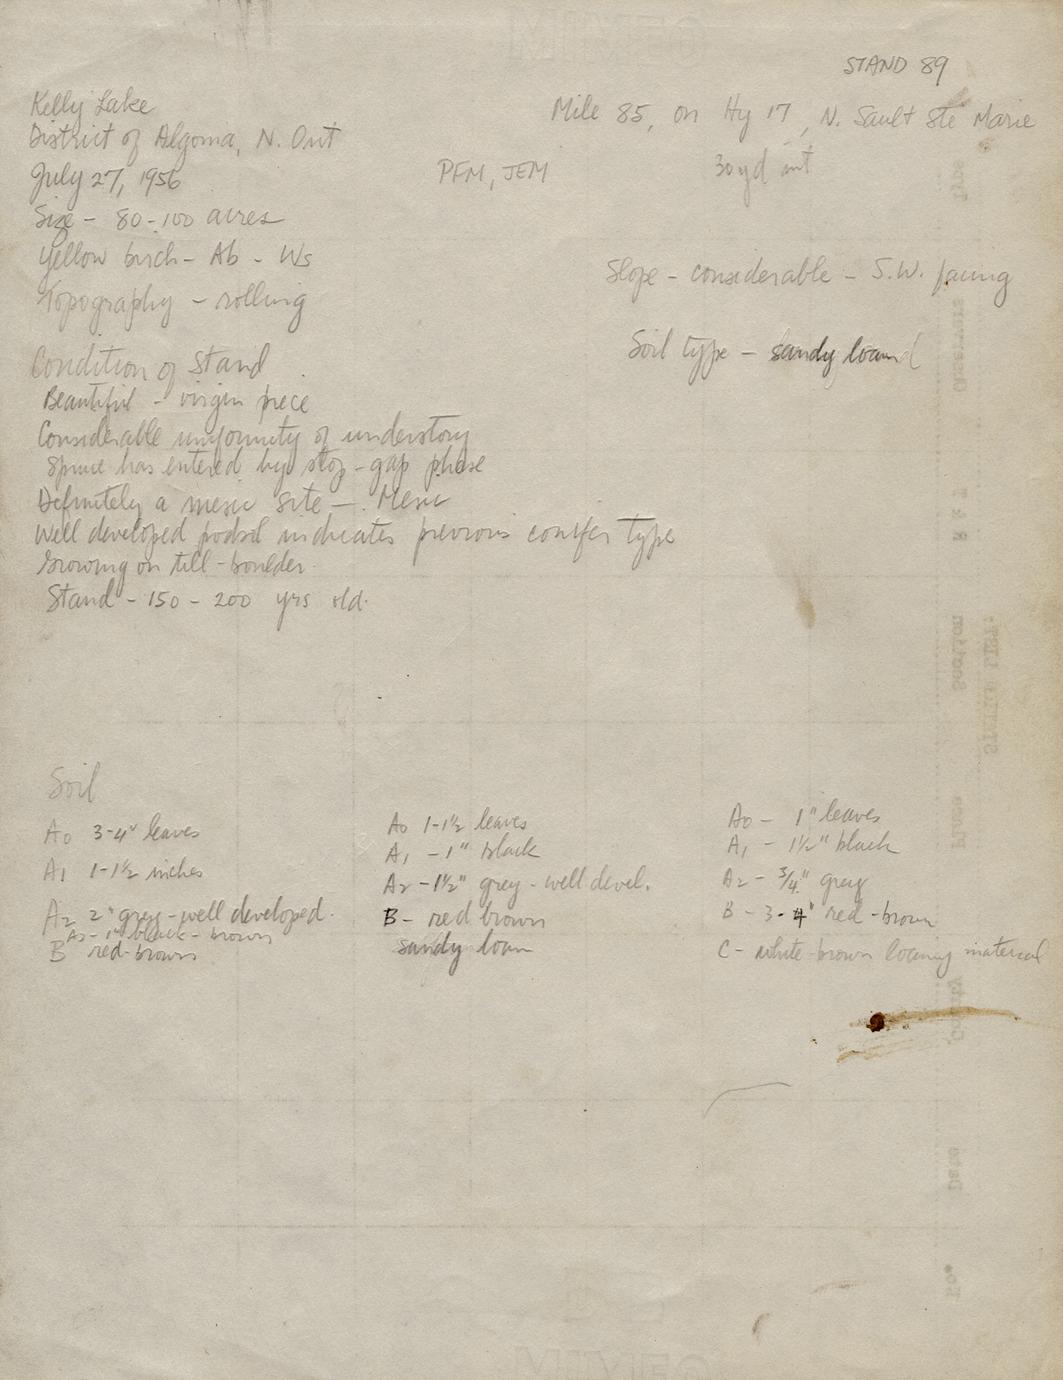 STAND 89
Kelly Lake
Mile 85, on Hy 17, N. Sault Ste Marie
District of Algoma, N. Ont
July 27, 1956
PFM, JEM
30 yd int
Size - 80-100 acres
Yellow birch - Ab - Ws
Slope - considerable - S.W. facing
Topography - rolling
Soil type - sandy loam
Condition of Stand
Beautiful - virgin piece
Considerable uniformity of understory
Spruce has entered by stop-gap phase
Definitely a mesic site - Mesic
Well developed podsol indicates previous conifer type
Growing on till-boulder.
Stand - 150 - 200 yrs old.
Soil
A0 3-4" leaves
A1 1-1½ inches
A2 2" grey - well developed.
A3 - 1" black - brown
B red-brown
A0 1-1½ leaves
A1 - 1" black
A2 - 1½" grey - well devel.
B - red brown
sandy loam
A0 - 1" leaves
A1 - 1½" black
A2 - ¾" grey
B - 3-4" red-brown
C - white-brown loamy material